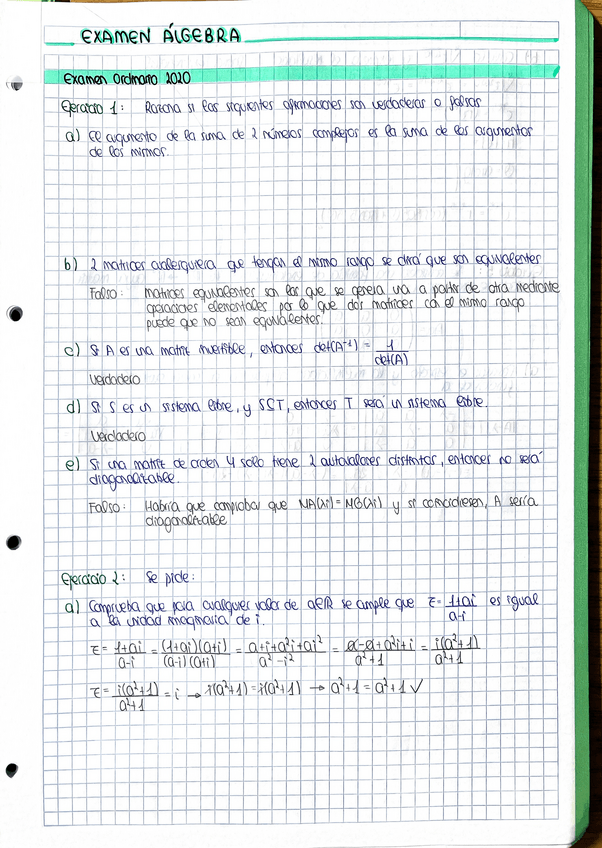 EXAMEN ÁLGEBRA
Examen Ordinario 2020
Ejercicio 1: Razona si las siguientes afirmaciones son verdaderas o falsas
a) El argumento de la suma de 2 números complejos es la suma de los argumentos
de los mismos.
b) 2 matrices cualesquiera que tengan el mismo rango se dirá que son equivalentes
Falso: matrices equivalentes son las que se genera una a partir de otra mediante
operaciones elementales por lo que dos matrices con el mismo rango
puede que no sean equivalentes.
c) Si A es una matriz invertible, entonces det(A⁻¹) = 1/det(A)
Verdadero
d) Si S es un sistema libre, y S⊆T, entonces T será un sistema libre.
Verdadero
e) Si una matriz de orden 4 solo tiene 2 autovalores distintos, entonces no será
diagonalizable.
Falso: Habría que comprobar que MA(λi) = MG(λi) y si coincidiesen, A sería
diagonalizable
Ejercicio 2: Se pide:
a) Comprueba que para cualquier valor de a∈ℝ se cumple que z = 1+ai/a-i es igual
a la unidad imaginaria de i.
z = 1+ai/a-i = (1+ai)(a+i)/(a-i)(a+i) = a+i+a²i+ai²/a²-i² = a-a+a²i+i/a²+1 = i(a²+1)/a²+1
z = i(a²+1)/a²+1 = i → i(a²+1) = i(a²+1) → a²+1 = a²+1 ✓